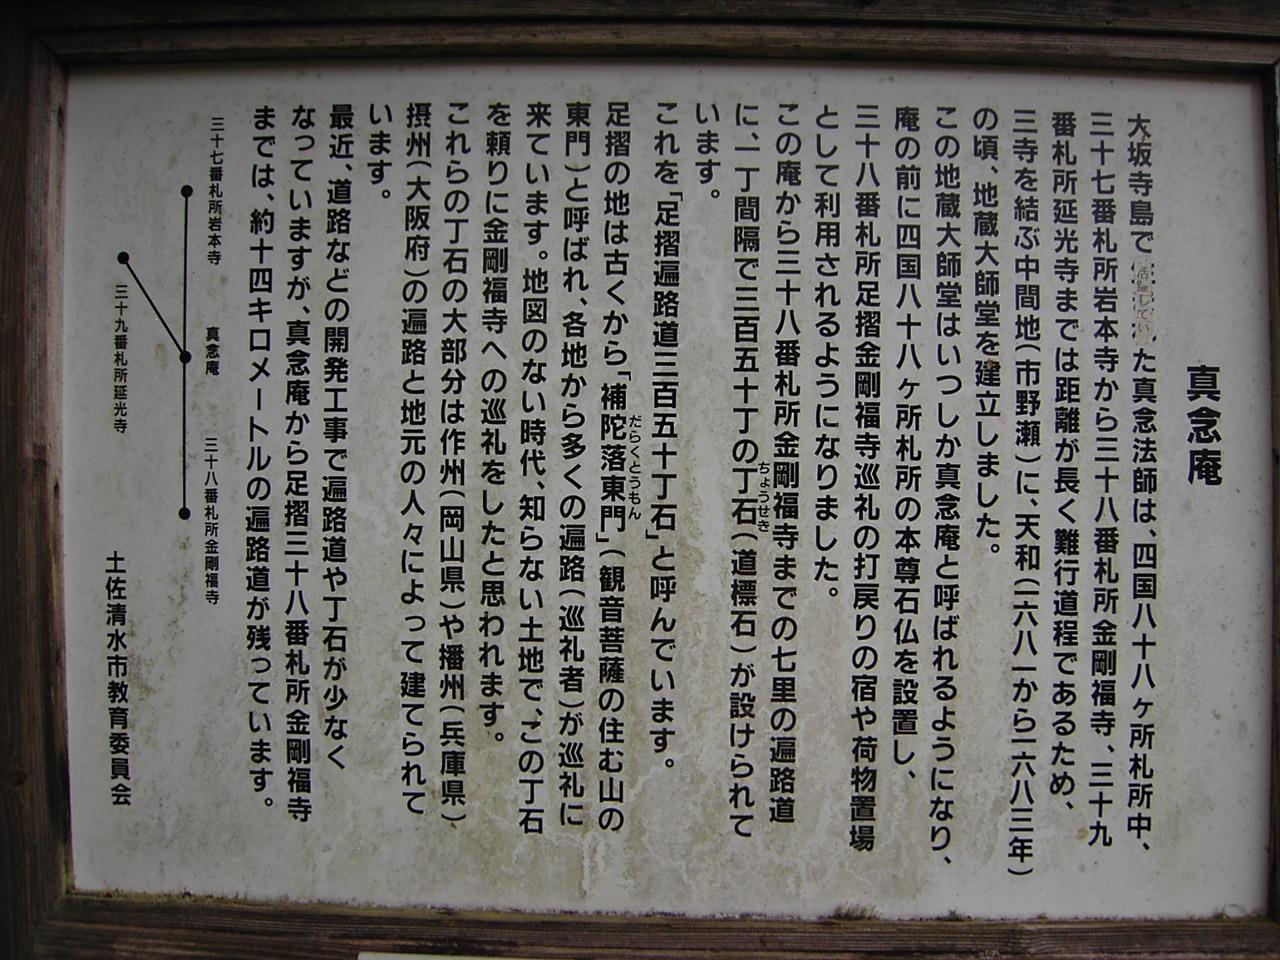 真念庵
大坂寺島で活躍していた真念法師は、四国八十八ヶ所札所中、
三十七番札所岩本寺から三十八番札所金剛福寺、三十九
番札所延光寺までは距離が長く難行道程であるため、
三寺を結ぶ中間地(市野瀬)に、天和(一六八一から一六八三年)
の頃、地蔵大師堂を建立しました。
この地蔵大師堂はいつしか真念庵と呼ばれるようになり、
庵の前に四国八十八ヶ所札所の本尊石仏を設置し、
三十八番札所足摺金剛福寺巡礼の打戻りの宿や荷物置場
として利用されるようになりました。
この庵から三十八番札所金剛福寺までの七里の遍路道
に、一丁間隔で三百五十丁の丁石(道標石)が設けられて
ちょうせき
います。
これを「足摺遍路道三百五十丁石」と呼んでいます。
足摺の地は古くから「補陀落東門」(観音菩薩の住む山の
だらくとうもん
東門)と呼ばれ、各地から多くの遍路(巡礼者)が巡礼に
来ています。地図のない時代、知らない土地で、この丁石
を頼りに金剛福寺への巡礼をしたと思われます。
これらの丁石の大部分は作州(岡山県)や播州(兵庫県)、
摂州(大阪府)の遍路と地元の人々によって建てられて
います。
最近、道路などの開発工事で遍路道や丁石が少なく
なっていますが、真念庵から足摺三十八番札所金剛福寺
までは、約十四キロメートルの遍路道が残っています。
三十七番札所岩本寺
真念庵
三十八番札所金剛福寺
三十九番札所延光寺
土佐清水市教育委員会